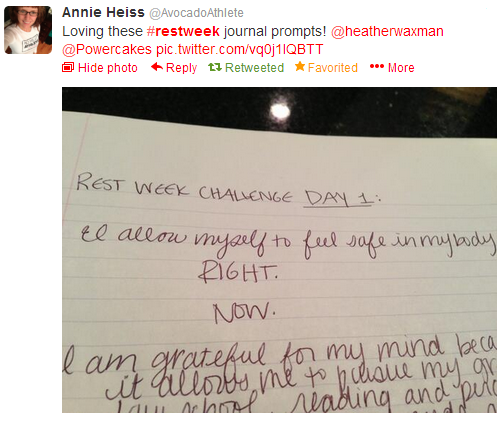 Annie Heiss @AvocadoAthlete
Loving these #restweek journal prompts! @heatherwaxman
@Powercakes pic.twitter.com/vq0j1lQBTT
Hide photo Reply Retweeted Favorited More
REST WEEK CHALLENGE DAY 1:
I allow myself to feel safe in my body
RIGHT.
NOW.
I am grateful for my mind beca
it allows me to pursue my gr
law school, reading and